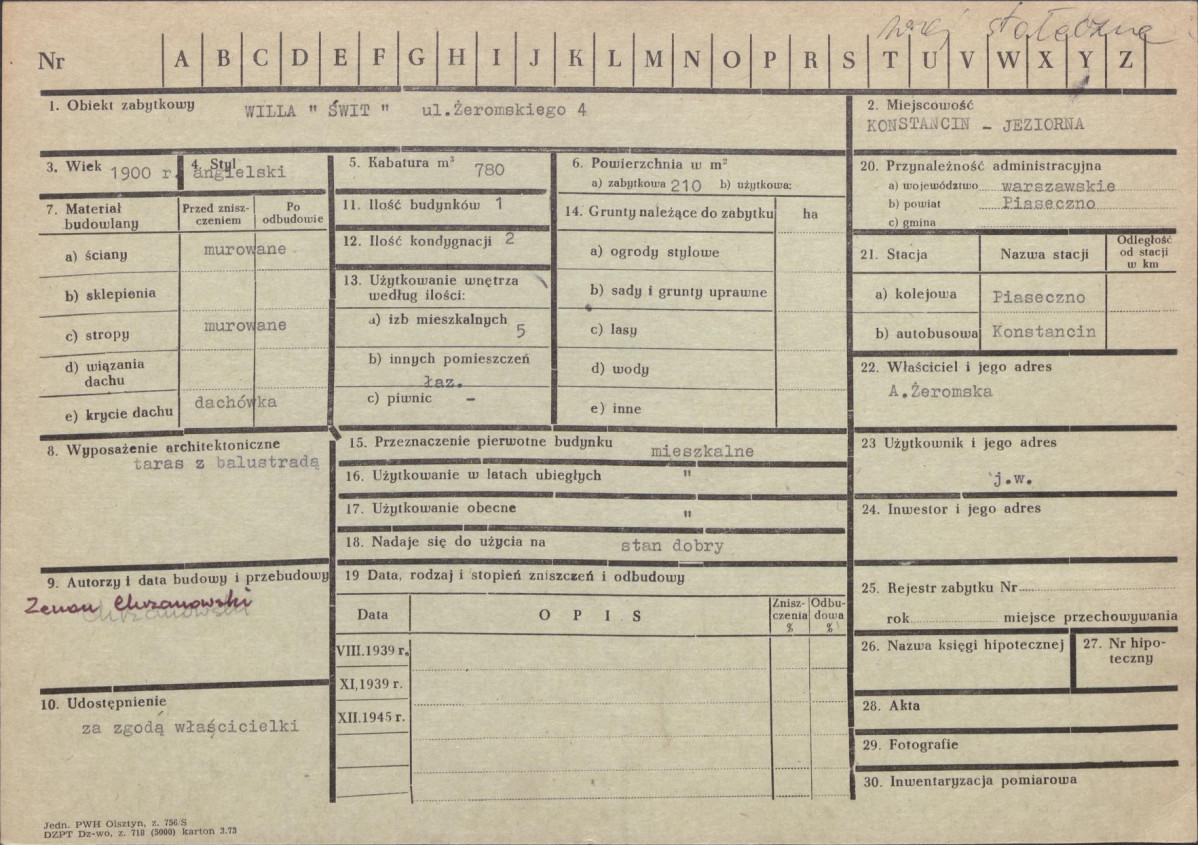 woj stołeczne
Nr A B C D E F G H I J K L M N O P R S T U V W X Y Z
1. Obiekt zabytkowy WILLA " ŚWIT " ul.Żeromskiego 4
2. Miejscowość
KONSTANCIN - JEZIORNA
3. Wiek 1900 r.
4. Styl
angielski
5. Kabatura m³ 780
6. Powierzchnia w m²
a) zabytkowa 210 b) użytkowa:
20. Przynależność administracyjna
a) województwo warszawskie
b) powiat Piaseczno
c) gmina
7. Materiał budowlany
Przed znisz-
czeniem
Po
odbudowie
a) ściany murowane
b) sklepienia
c) stropy murowane
d) wiązania
dachu
e) krycie dachu dachówka
11. Ilość budynków 1
12. Ilość kondygnacji 2
13. Użytkowanie wnętrza
według ilości:
a) izb mieszkalnych 5
b) innych pomieszczeń
łaz.
c) piwnic -
14. Grunty należące do zabytku ha
a) ogrody stylowe
b) sady i grunty uprawne
c) lasy
d) wody
e) inne
21. Stacja Nazwa stacji
Odległość
od stacji
w km
a) kolejowa Piaseczno
b) autobusowa Konstancin
22. Właściciel i jego adres
A.Żeromska
8. Wyposażenie architektoniczne
taras z balustradą
15. Przeznaczenie pierwotne budynku mieszkalne
16. Użytkowanie w latach ubiegłych "
17. Użytkowanie obecne "
18. Nadaje się do użycia na stan dobry
23 Użytkownik i jego adres
j.w.
24. Inwestor i jego adres
9. Autorzy i data budowy i przebudowy
Zenon Chrzanowski
Chrzanowski
19 Data, rodzaj i stopień zniszczeń i odbudowy
Data O P I S
Znisz-
czenia
%
Odbu-
dowa
%
VIII.1939 r.
XI,1939 r.
XII.1945 r.
25. Rejestr zabytku Nr
rok miejsce przechowywania
26. Nazwa księgi hipotecznej
27. Nr hipo-
teczny
10. Udostępnienie
za zgodą właścicielki
28. Akta
29. Fotografie
30. Inwentaryzacja pomiarowa
Jedn. PWH Olsztyn, z. 756/S
DZPT Dz-wo, z. 718 (5000) karton 3.73